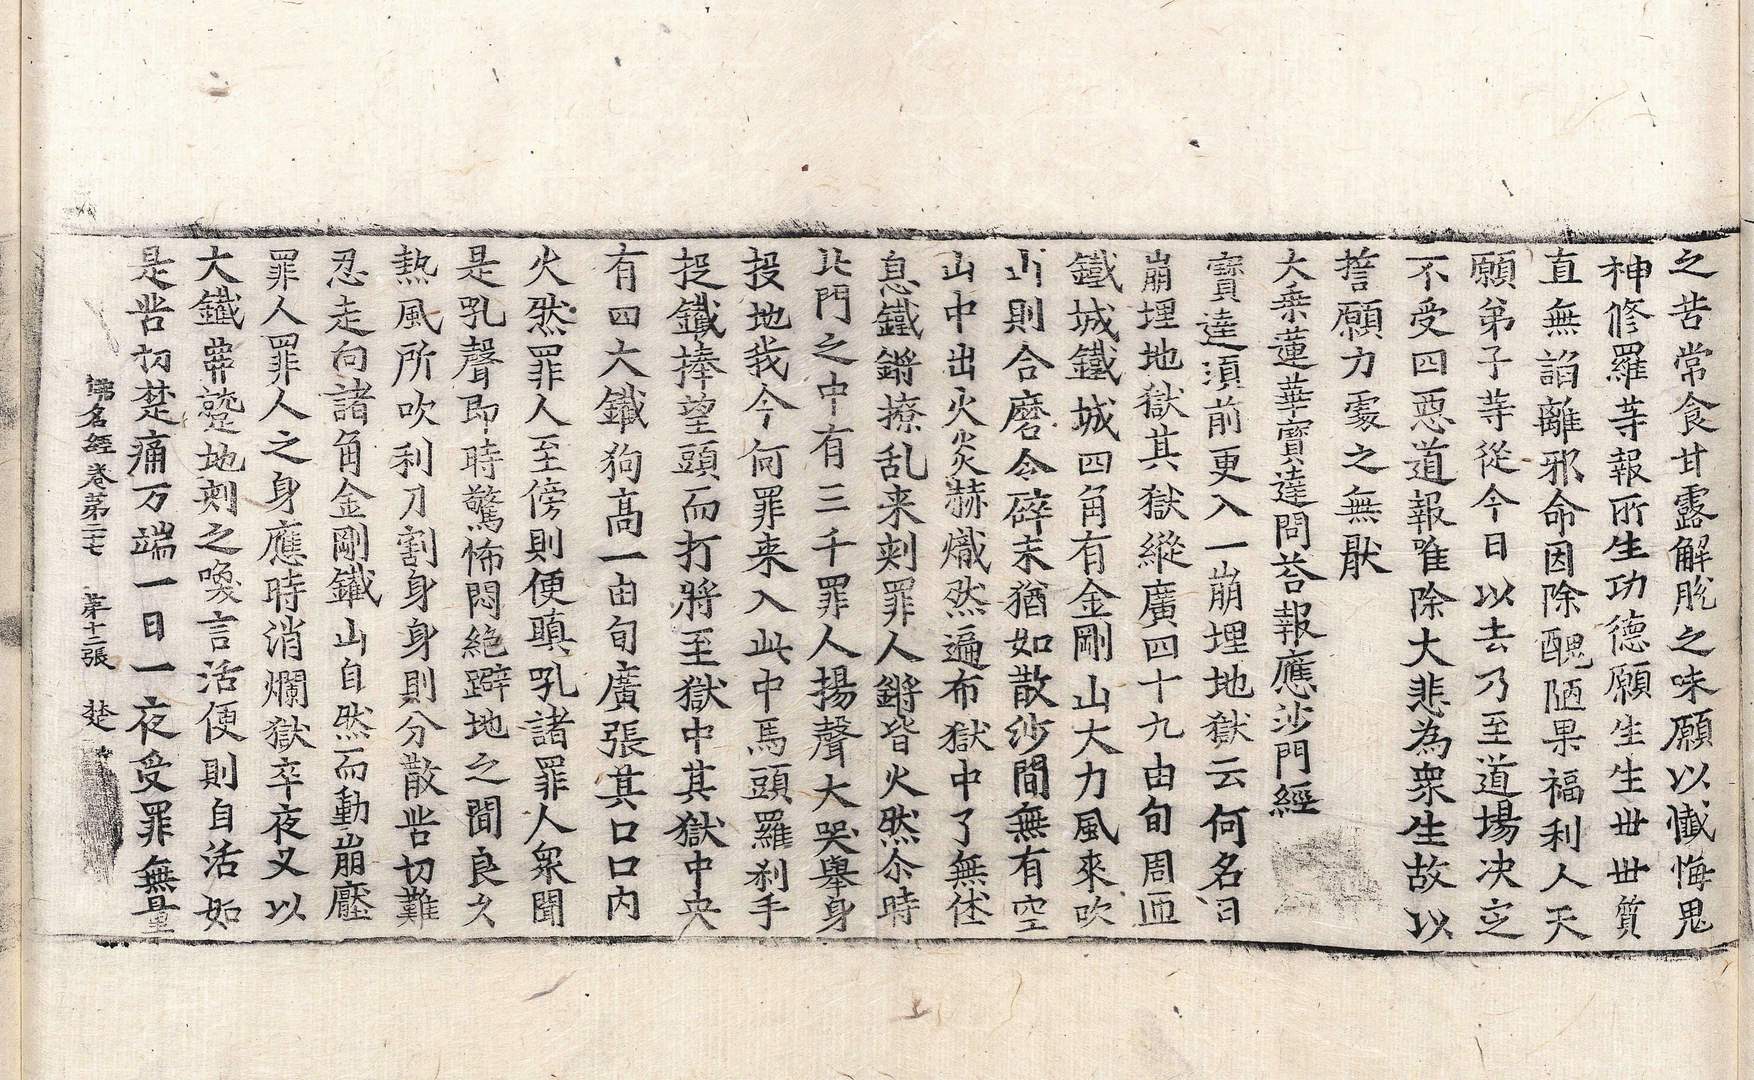 之苦常食甘露解脫之味願以懺悔鬼
神修羅等報所生功德願生生世世質
直無諂離邪命因除醜陋果福利人天
願弟子等從今日以去乃至道場決定
不受四惡道報唯除大悲為衆生故以
誓願力處之無猒
大乗蓮華寶達問荅報應沙門經
寶達湏前更入一崩埋地獄云何名曰
崩埋地獄其獄縱廣四十九由旬周迊
鐵城鐵城四角有金剛山大力風來吹
山則合磨令碎末猶如散沙間無有空
山中出火炎赫熾然遍布獄中了無休
息鐵鏘撩乱来刾罪人鏘皆火然尒時
北門之中有三千罪人揚聲大哭舉身
投地我今何罪来入此中馬頭羅剎手
捉鐵捧望頭而打將至獄中其獄中央
有四大鐵狗高一由旬廣張其口口内
火然罪人至傍則便瞋吼諸罪人衆聞
是吼聲即時驚怖悶絶躃地之間良久
熱風所吹利刀割身身則分散苦切難
忍走向諸角金剛鐵山自然而動崩壓
罪人罪人之身應時消爛獄卒夜叉以
大鐵 地刾之喚言活便則自活如
是苦切楚痛万端一日一夜受罪無量
佛名經卷第二十七 第十二張 楚